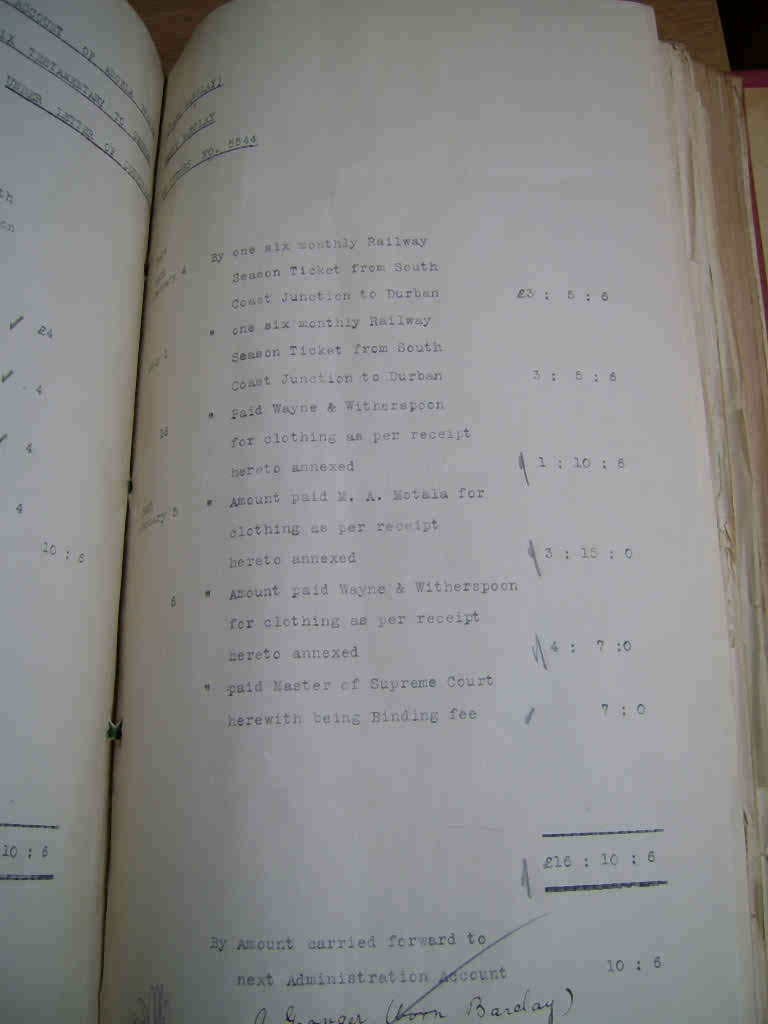 ACCOUNT OF ANGELA
TESTAMENTARY TO
UNDER LETTER OF
£4
4
4
4
10 : 6
10 : 6
NO. 5544
4 By one six monthly Railway
Season Ticket from South
Coast Junction to Durban £3 : 5 : 6
1 " one six monthly Railway
Season Ticket from South
Coast Junction to Durban 3 : 5 : 6
16 " Paid Wayne & Witherspoon
for clothing as per receipt
hereto annexed 1 : 10 : 6
5 " Amount paid M. A. Motala for
clothing as per receipt
hereto annexed 3 : 15 : 0
6 " Amount paid Wayne & Witherspoon
for clothing as per receipt
hereto annexed 4 : 7 :0
" paid Master of Supreme Court
herewith being Binding fee 7 : 0
£16 : 10 : 6
By Amount carried forward to
next Administration Account 10 : 6
Granger (born Barclay)